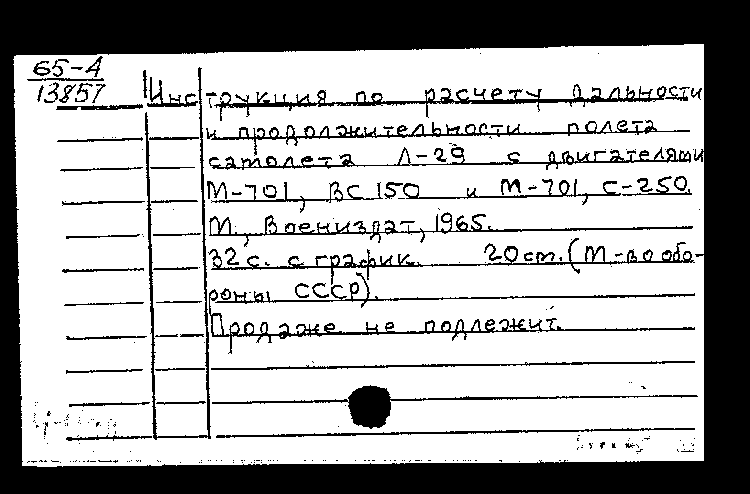 65-4
13857
Инструкция по расчету дальности
и продолжительности полета
самолета Л-29 с двигателями
М-701, ВС 150 и М-701, С-250.
М., Воениздат, 1965.
32 с. с график. 20 см. (М-во обо-
роны СССР).
Продаже не подлежит.